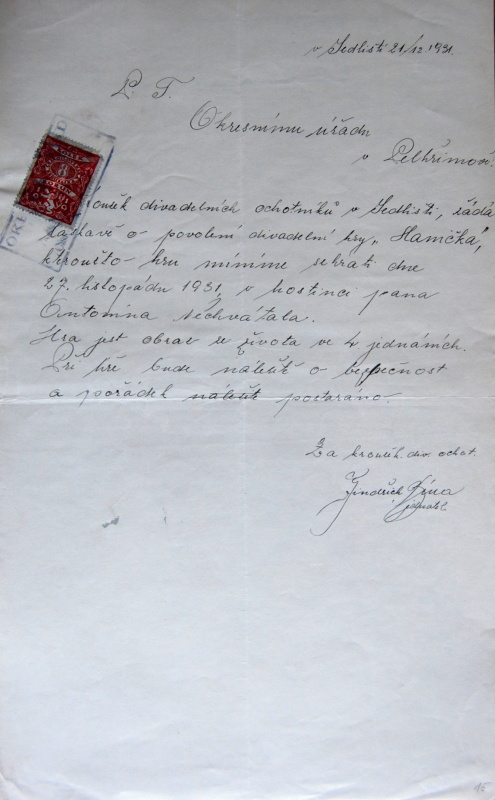 v Jedlišti 21/10 1931.
P. T.
Okresnímu úřadu
v Pelhřimově
Kroužek divadelních ochotníků v Jedlišti, žádá
laskavě o povolení divadelní hry, "Hanička",
kteroužto hru míníme sehráti dne
27. listopadu 1931, v hostinci pana
Antonína Nechvátala.
Hra jest obraz ze života ve 4 jednáních.
Při hře bude náležitě o bezpečnost
a pořádek náležitě postaráno.
Za kroužek. div. ochot.
Jindřich
jednatel
15